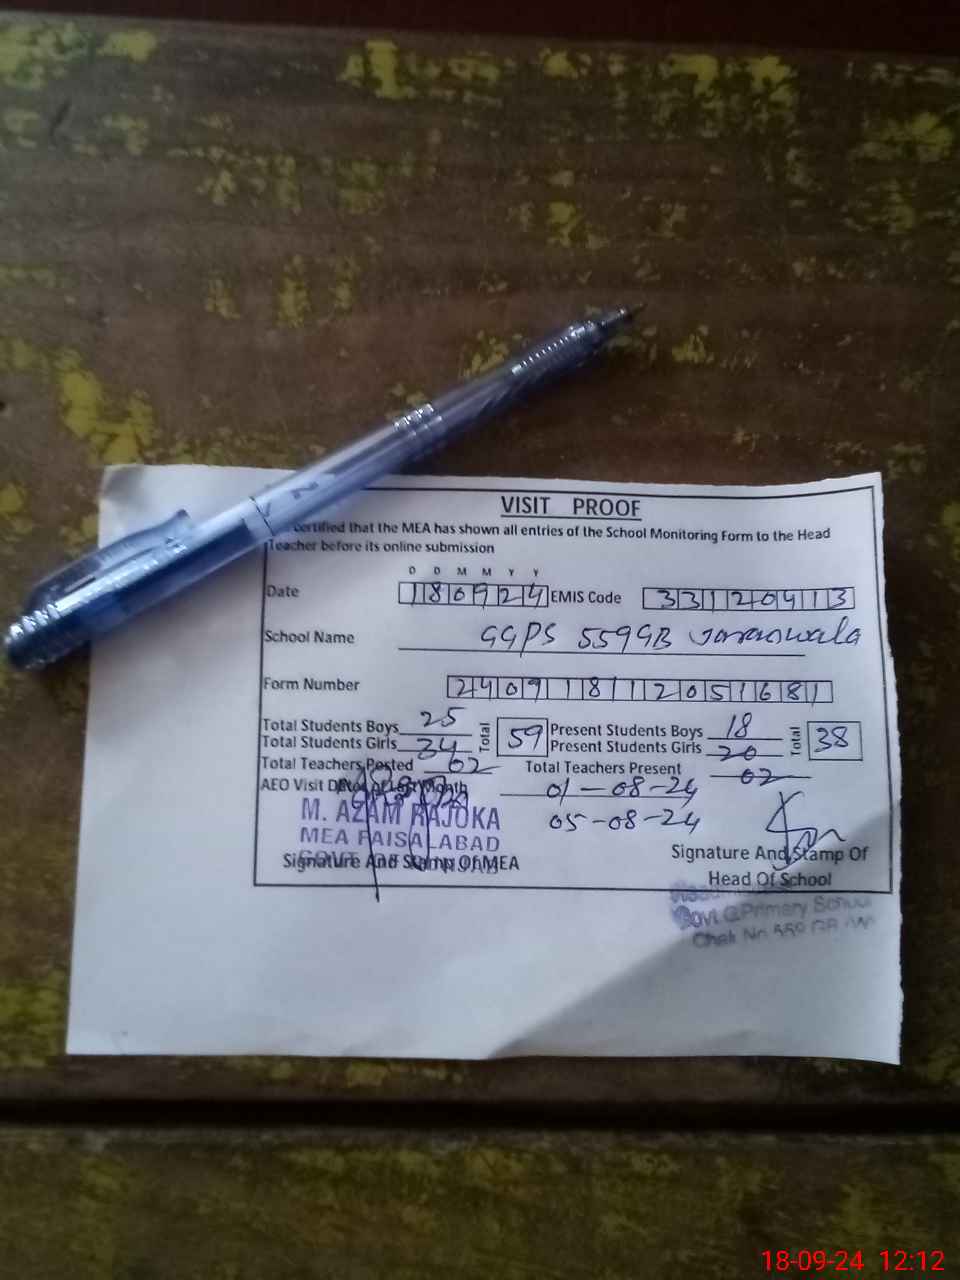 VISIT PROOF
certified that the MEA has shown all entries of the School Monitoring Form to the Head
Teacher before its online submission
D D M M Y Y
Date 180924 EMIS Code 33120413
School Name GGPS 559GB Jaranwala
Form Number 2409118112051681
Total Students Boys 25 Total 59 Present Students Boys 18 Total 38
Total Students Girls 34 Present Students Girls 20
Total Teachers Posted 02 Total Teachers Present 02
AEO Visit Dates of Last Month 01-08-24
05-08-24
M. AZAM RAJOKA
MEA FAISALABAD
Signature And Stamp Of MEA
Signature And Stamp Of
Head Of School
Govt. G Primary School
Chak No 559 GB
18-09-24 12:12